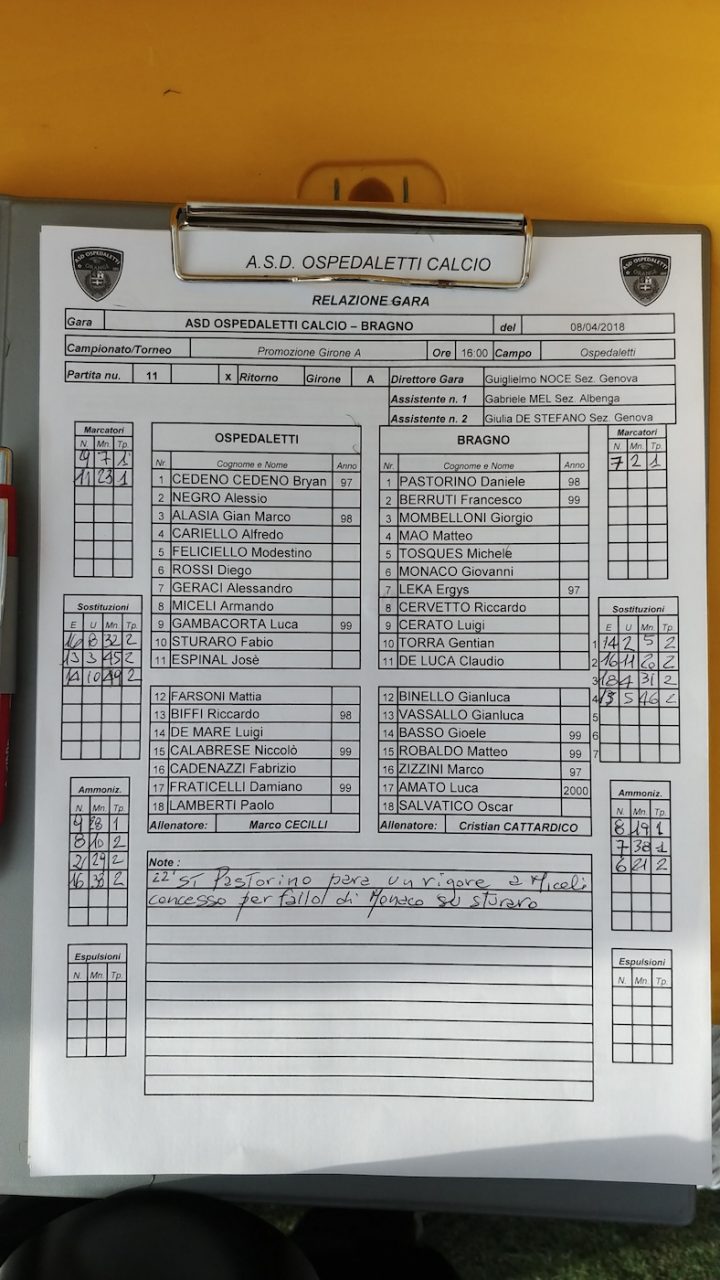 A.S.D. OSPEDALETTI CALCIO
RELAZIONE GARA
Gara ASD OSPEDALETTI CALCIO – BRAGNO del 08/04/2018
Campionato/Torneo Promozione Girone A Ore 16:00 Campo Ospedaletti
Partita nu. 11 x Ritorno Girone A Direttore Gara Guiglielmo NOCE Sez. Genova
Assistente n. 1 Gabriele MEL Sez. Albenga
Assistente n. 2 Giulia DE STEFANO Sez. Genova
Marcatori
N. Mn. Tp.
9 7 1
11 23 1
Sostituzioni
E U Mn. Tp.
16 8 32 2
13 3 45 2
14 10 49 2
Ammoniz.
N. Mn. Tp.
9 28 1
8 10 2
2 29 2
16 38 2
Espulsioni
N. Mn. Tp.
OSPEDALETTI
Nr. Cognome e Nome Anno
1 CEDENO CEDENO Bryan 97
2 NEGRO Alessio
3 ALASIA Gian Marco 98
4 CARIELLO Alfredo
5 FELICIELLO Modestino
6 ROSSI Diego
7 GERACI Alessandro
8 MICELI Armando
9 GAMBACORTA Luca 99
10 STURARO Fabio
11 ESPINAL Josè
12 FARSONI Mattia
13 BIFFI Riccardo 98
14 DE MARE Luigi
15 CALABRESE Niccolò 99
16 CADENAZZI Fabrizio
17 FRATICELLI Damiano 99
18 LAMBERTI Paolo
Allenatore: Marco CECILLI
BRAGNO
Nr. Cognome e Nome Anno
1 PASTORINO Daniele 98
2 BERRUTI Francesco 99
3 MOMBELLONI Giorgio
4 MAO Matteo
5 TOSQUES Michele
6 MONACO Giovanni
7 LEKA Ergys 97
8 CERVETTO Riccardo
9 CERATO Luigi
10 TORRA Gentian
11 DE LUCA Claudio
12 BINELLO Gianluca
13 VASSALLO Gianluca
14 BASSO Gioele 99
15 ROBALDO Matteo 99
16 ZIZZINI Marco 97
17 AMATO Luca 2000
18 SALVATICO Oscar
Allenatore: Cristian CATTARDICO
Marcatori
N. Mn. Tp.
7 2 1
Sostituzioni
E U Mn. Tp.
1 14 2 5 2
2 16 11 20 2
3 18 4 31 2
4 15 5 46 2
5
6
7
Ammoniz.
N. Mn. Tp.
8 19 1
7 38 1
6 21 2
Espulsioni
N. Mn. Tp.
Note :
22' ST Pastorino para un rigore a Miceli
concesso per fallo di Monaco su Sturaro